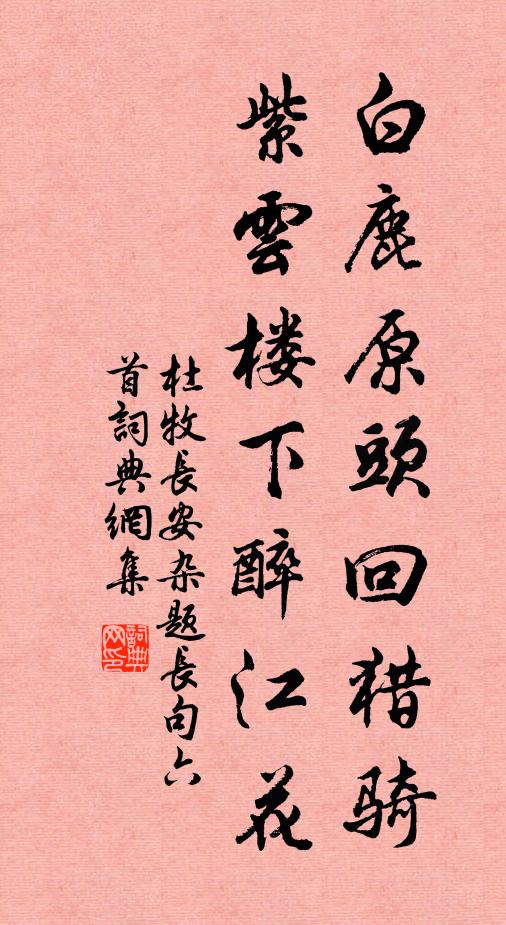 白鹿原頭回猎骑
紫雲楼下醉江花
杜牧長安杂题長句六
首詞典網集
詞典网印